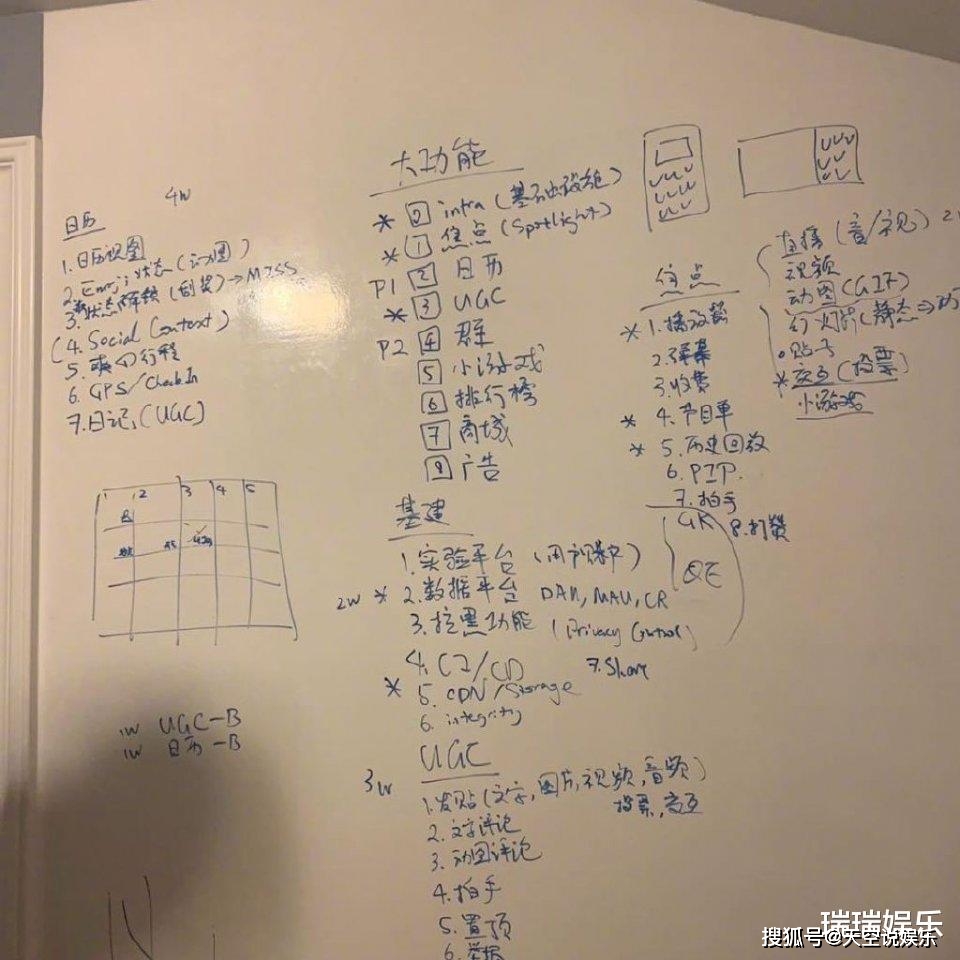 大功能
* 0 infra (基础设施)
* 1 焦点 (Spotlight)
P1 2 日历
* 3 UGC
P2 4 群
5 小游戏
6 排行榜
7 商城
9 广告
4W
日历
1. 日历视图
2. Emoji 状态 (动图)
3. 状态解锁 (创装) → MISS
(4. Social Context)
5. 行程
6. GPS/Check In
7. 日记, (UGC)
1 2 3 4 5
1W UGC-B
1W 日历-B
焦点
* 1. 播放器
2. 弹幕
3. 收费
* 4. 节目单
* 5. 历史回放
6. PIP.
7. 拍手
8. 打赏
直播 (音/视)
视频
动图 (GIF)
幻灯片 (静态 ⇒
贴子
* 交互 (投票)
小游戏
基建
1. 实验平台
2W * 2. 数据平台 DAU, MAU, CR
3. 拉黑功能 (Privacy Control)
4. CI/CD 7. Share
* 5. CDN/Storage
6. integrity
GK
QE
UGC
3W
1. 发贴 (文字, 图片, 视频, 音频)
投票, 交互
2. 文字评论
3. 动图评论
4. 拍手
5. 置顶
6. 举报
瑞瑞娱乐
搜狐号@天空说娱乐